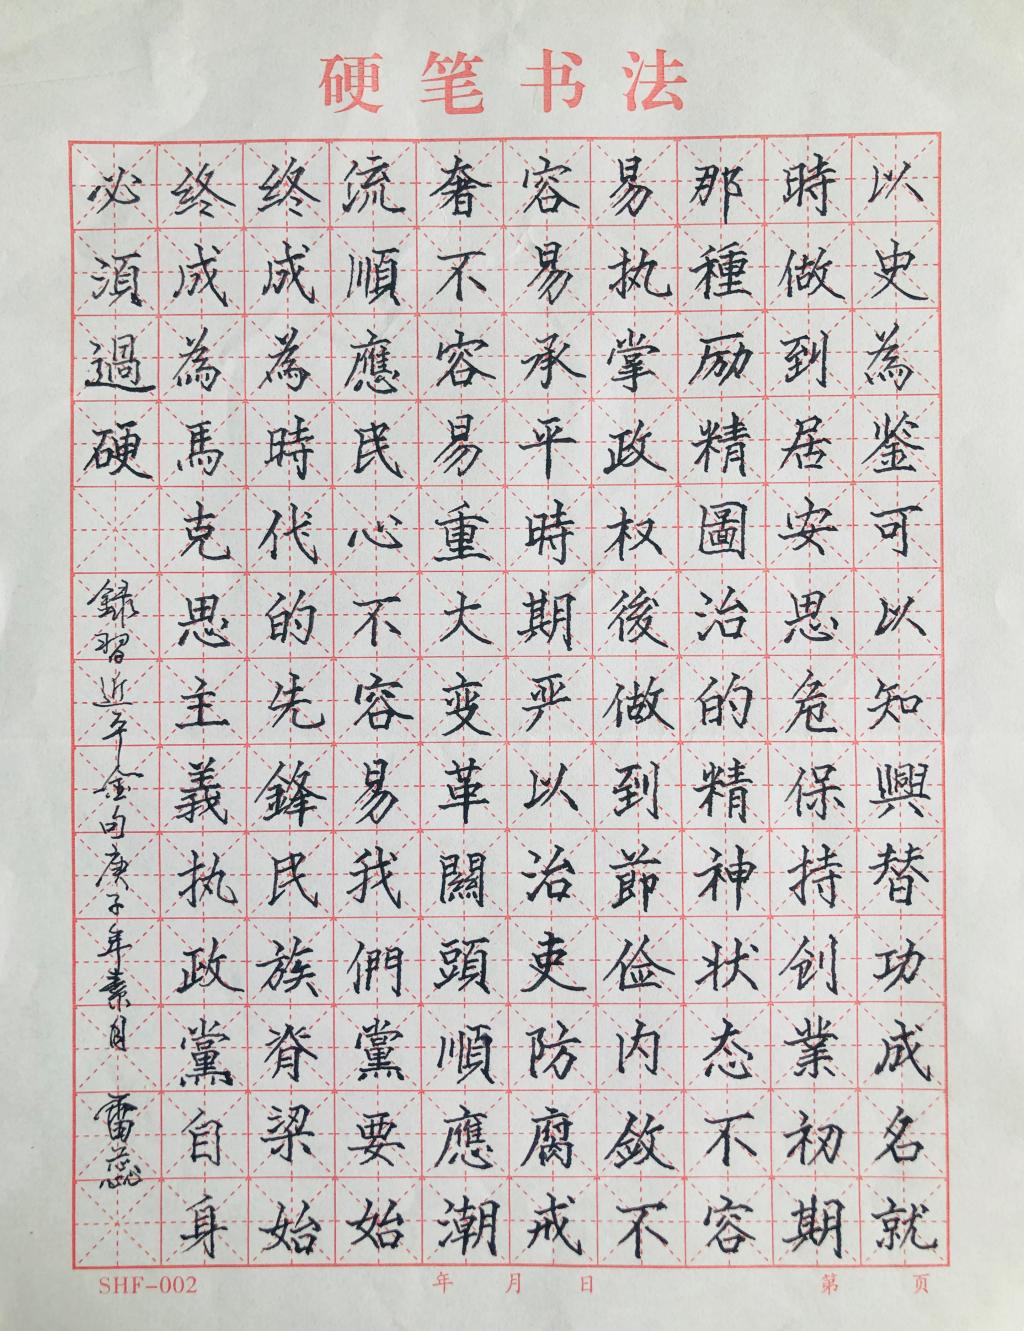 硬笔书法
以史為鉴可以知興替功成名就
時做到居安思危保持创業初期
那種励精圖治的精神状态不容
易执掌政权後做到節俭内敛不
容易承平時期严以治吏防腐戒
奢不容易重大变革關頭順應潮
流順應民心不容易我們黨要始
终成為時代的先鋒民族脊梁始
终成為馬克思主義执政黨自身
必須過硬
録習近平金句庚子年素月
雷蕊
SHF-002
年 月 日
第 页